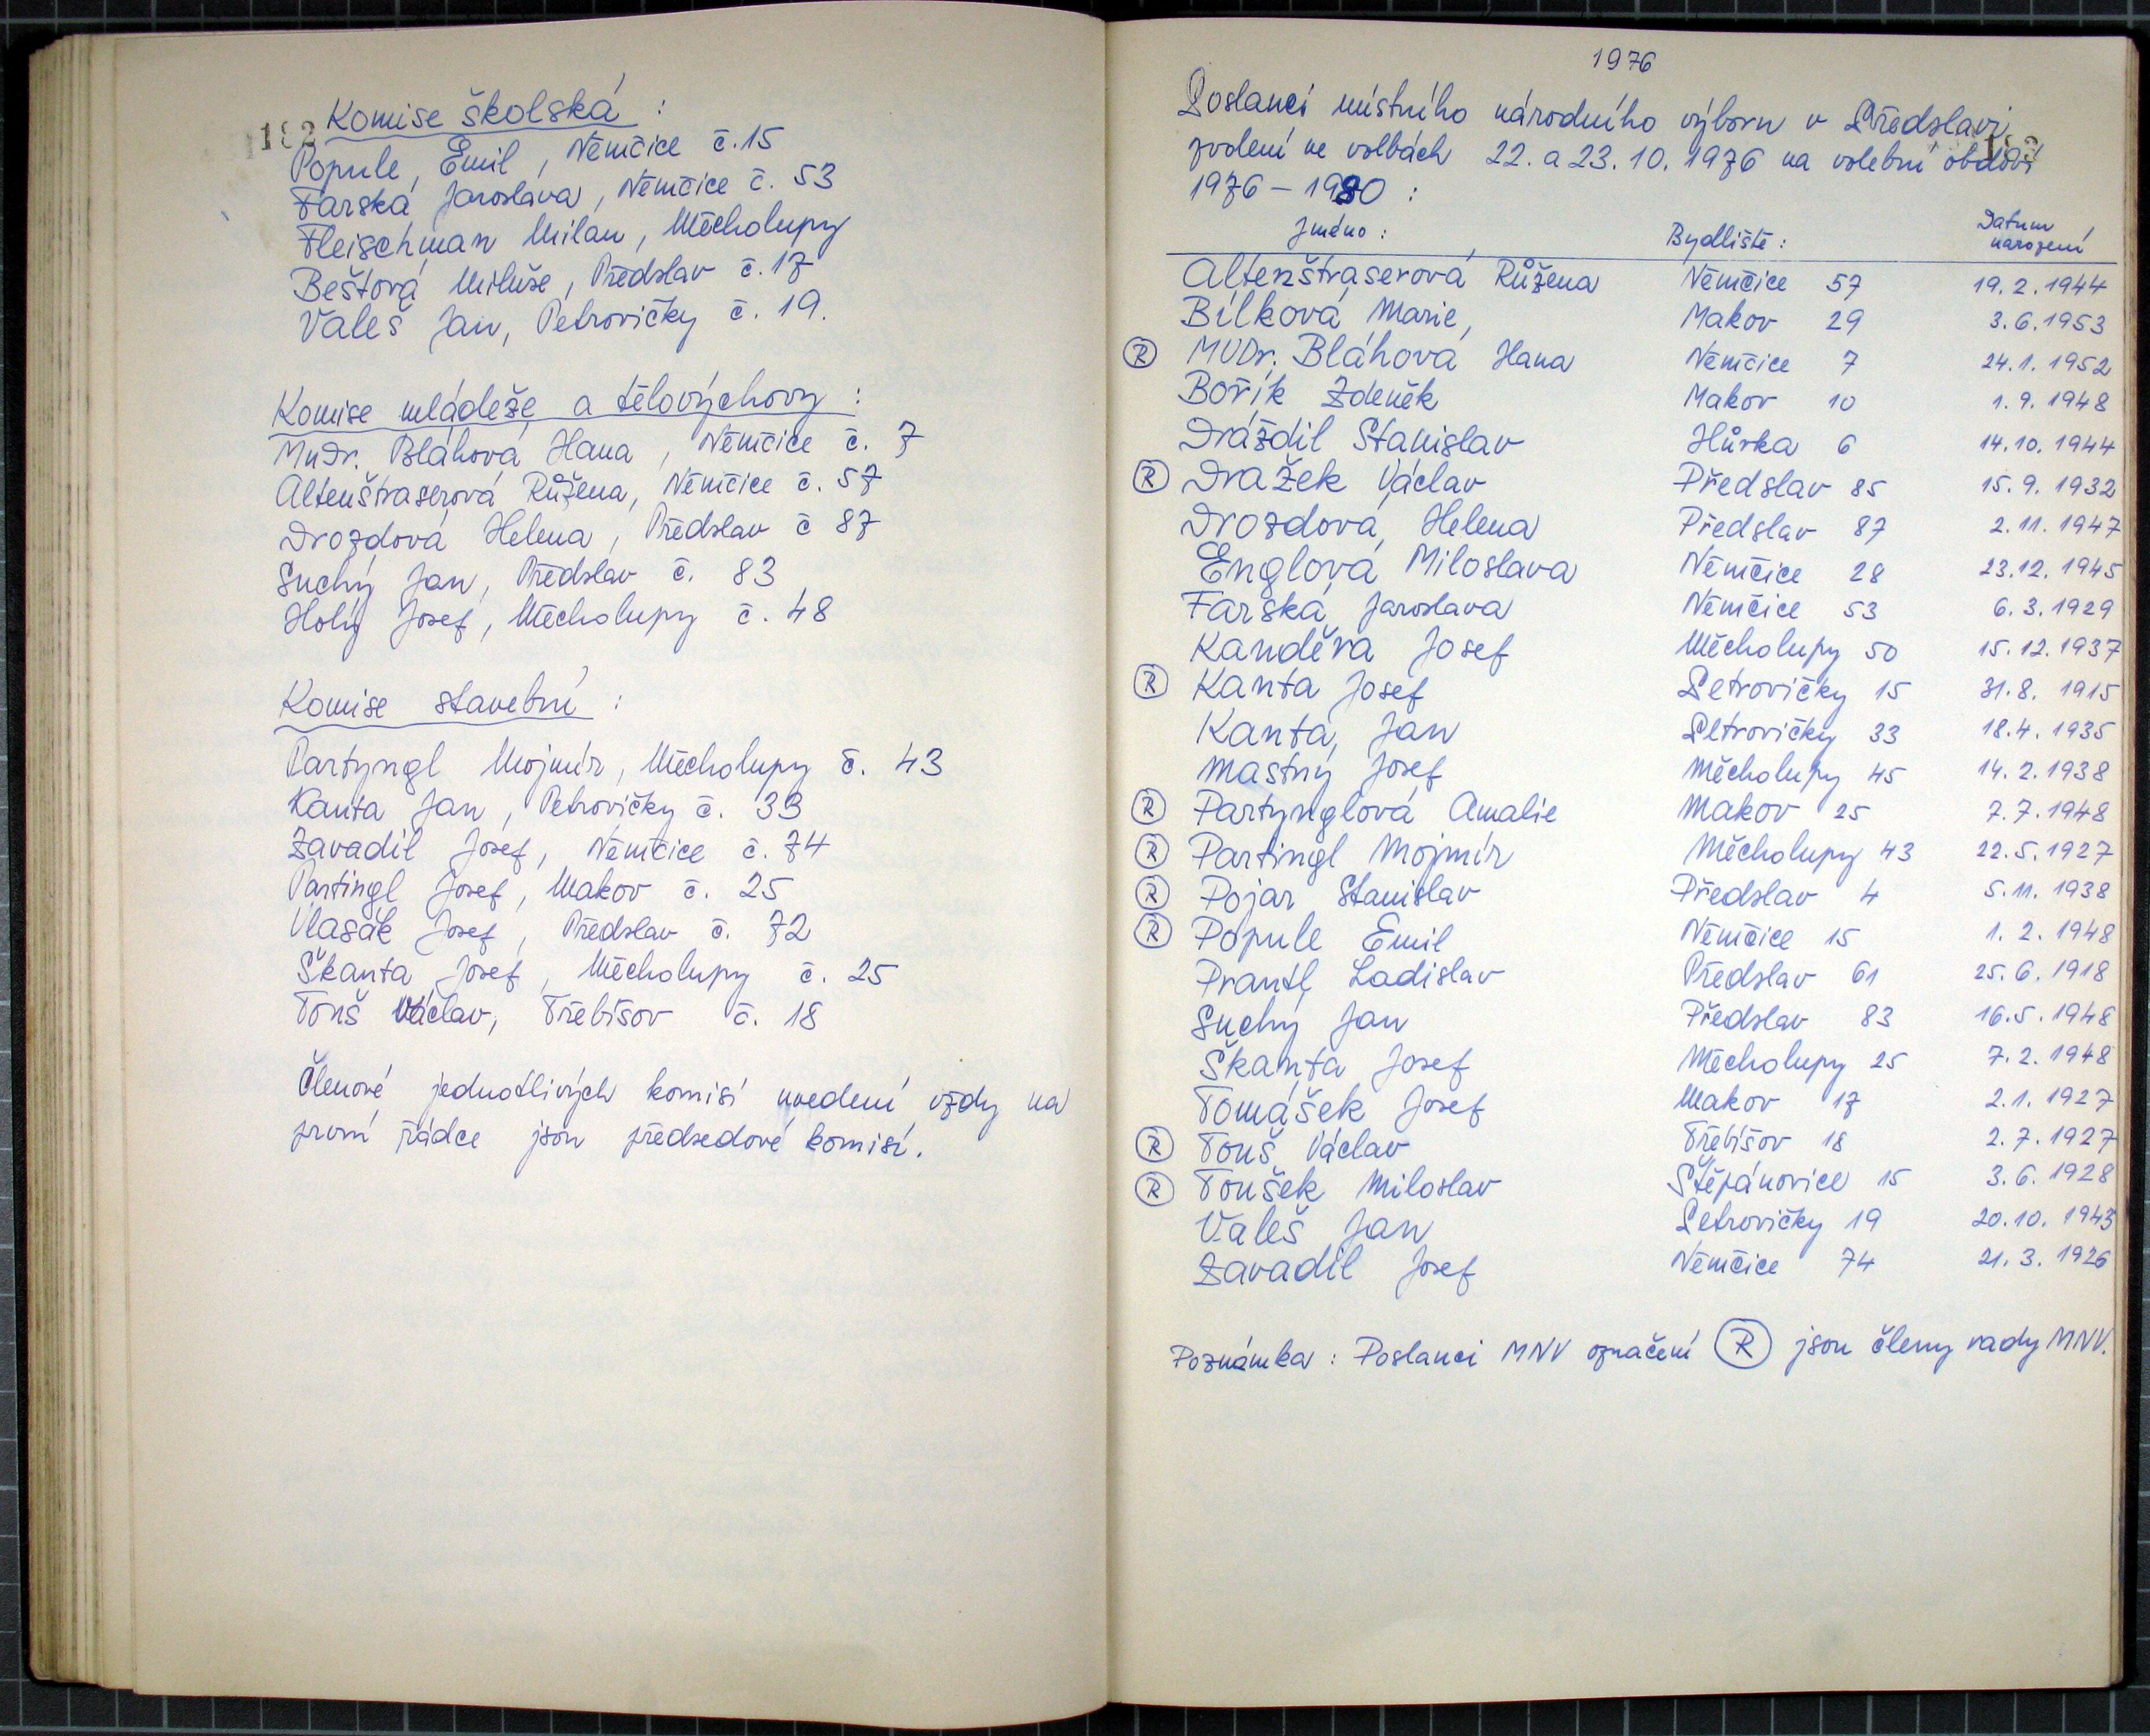 182
Komise školská :
Popule, Emil, Němčice č. 15
Farská Jaroslava, Němčice č. 53
Fleischman Milan, Měcholupy
Beštová Miluše, Předslav č. 17
Valeš Jan, Petrovičky č. 19.
Komise mládeže a tělovýchovy :
MuDr. Bláhová Hana, Němčice č. 7
Altenštraserová Růžena, Němčice č. 57
Drozdová Helena, Předslav č 87
Suchý Jan, Předslav č. 83
Holý Josef, Měcholupy č. 48
Komise stavební :
Partyngl Mojmír, Měcholupy č. 43
Kanta Jan, Petrovičky č. 33
Zavadil Josef, Němčice č. 74
Partingl Josef, Makov č. 25
Vlasák Josef, Předslav č. 72
Škanta Josef, Měcholupy č. 25
Touš Václav, Třebíšov č. 18
Členové jednotlivých komisí uvedení vždy na
první řádce jsou předsedové komisí.
1976
Poslanci místního národního výboru v Předslavi
zvolení ve volbách 22. a 23. 10. 1976 na volební období
1976 – 1980 :
Jméno : Bydliště : Datum narození
Altenštraserová Růžena Němčice 57 19. 2. 1944
Bílková Marie, Makov 29 3. 6. 1953
Ⓡ MUDr. Bláhová Hana Němčice 7 24. 1. 1952
Bořík Zdeněk Makov 10 1. 9. 1948
Dráždil Stanislav Hůrka 6 14. 10. 1944
Ⓡ Dražek Václav Předslav 85 15. 9. 1932
Drozdová Helena Předslav 87 2. 11. 1947
Englová Miloslava Němčice 28 23. 12. 1945
Farská Jaroslava Němčice 53 6. 3. 1929
Kanděra Josef Měcholupy 50 15. 12. 1937
Ⓡ Kanta Josef Petrovičky 15 31. 8. 1915
Kanta, Jan Petrovičky 33 18. 4. 1935
Mastný Josef Měcholupy 45 14. 2. 1938
Ⓡ Partynglová Amalie Makov 25 7. 7. 1948
Ⓡ Partingl Mojmír Měcholupy 43 22. 5. 1927
Ⓡ Pojar Stanislav Předslav 4 5. 11. 1938
Ⓡ Popule Emil Němčice 15 1. 2. 1948
Prantl Ladislav Předslav 61 25. 6. 1918
Suchý Jan Předslav 83 16. 5. 1948
Škanta Josef Měcholupy 25 7. 2. 1948
Tomášek Josef Makov 17 2. 1. 1927
Ⓡ Touš Václav Třebíšov 18 2. 7. 1927
Ⓡ Toušek Miloslav Štěpánovice 15 3. 6. 1928
Valeš Jan Petrovičky 19 20. 10. 1943
Zavadil Josef Němčice 74 21. 3. 1926
Poznámka : Poslanci MNV označení Ⓡ jsou členy rady MNV.